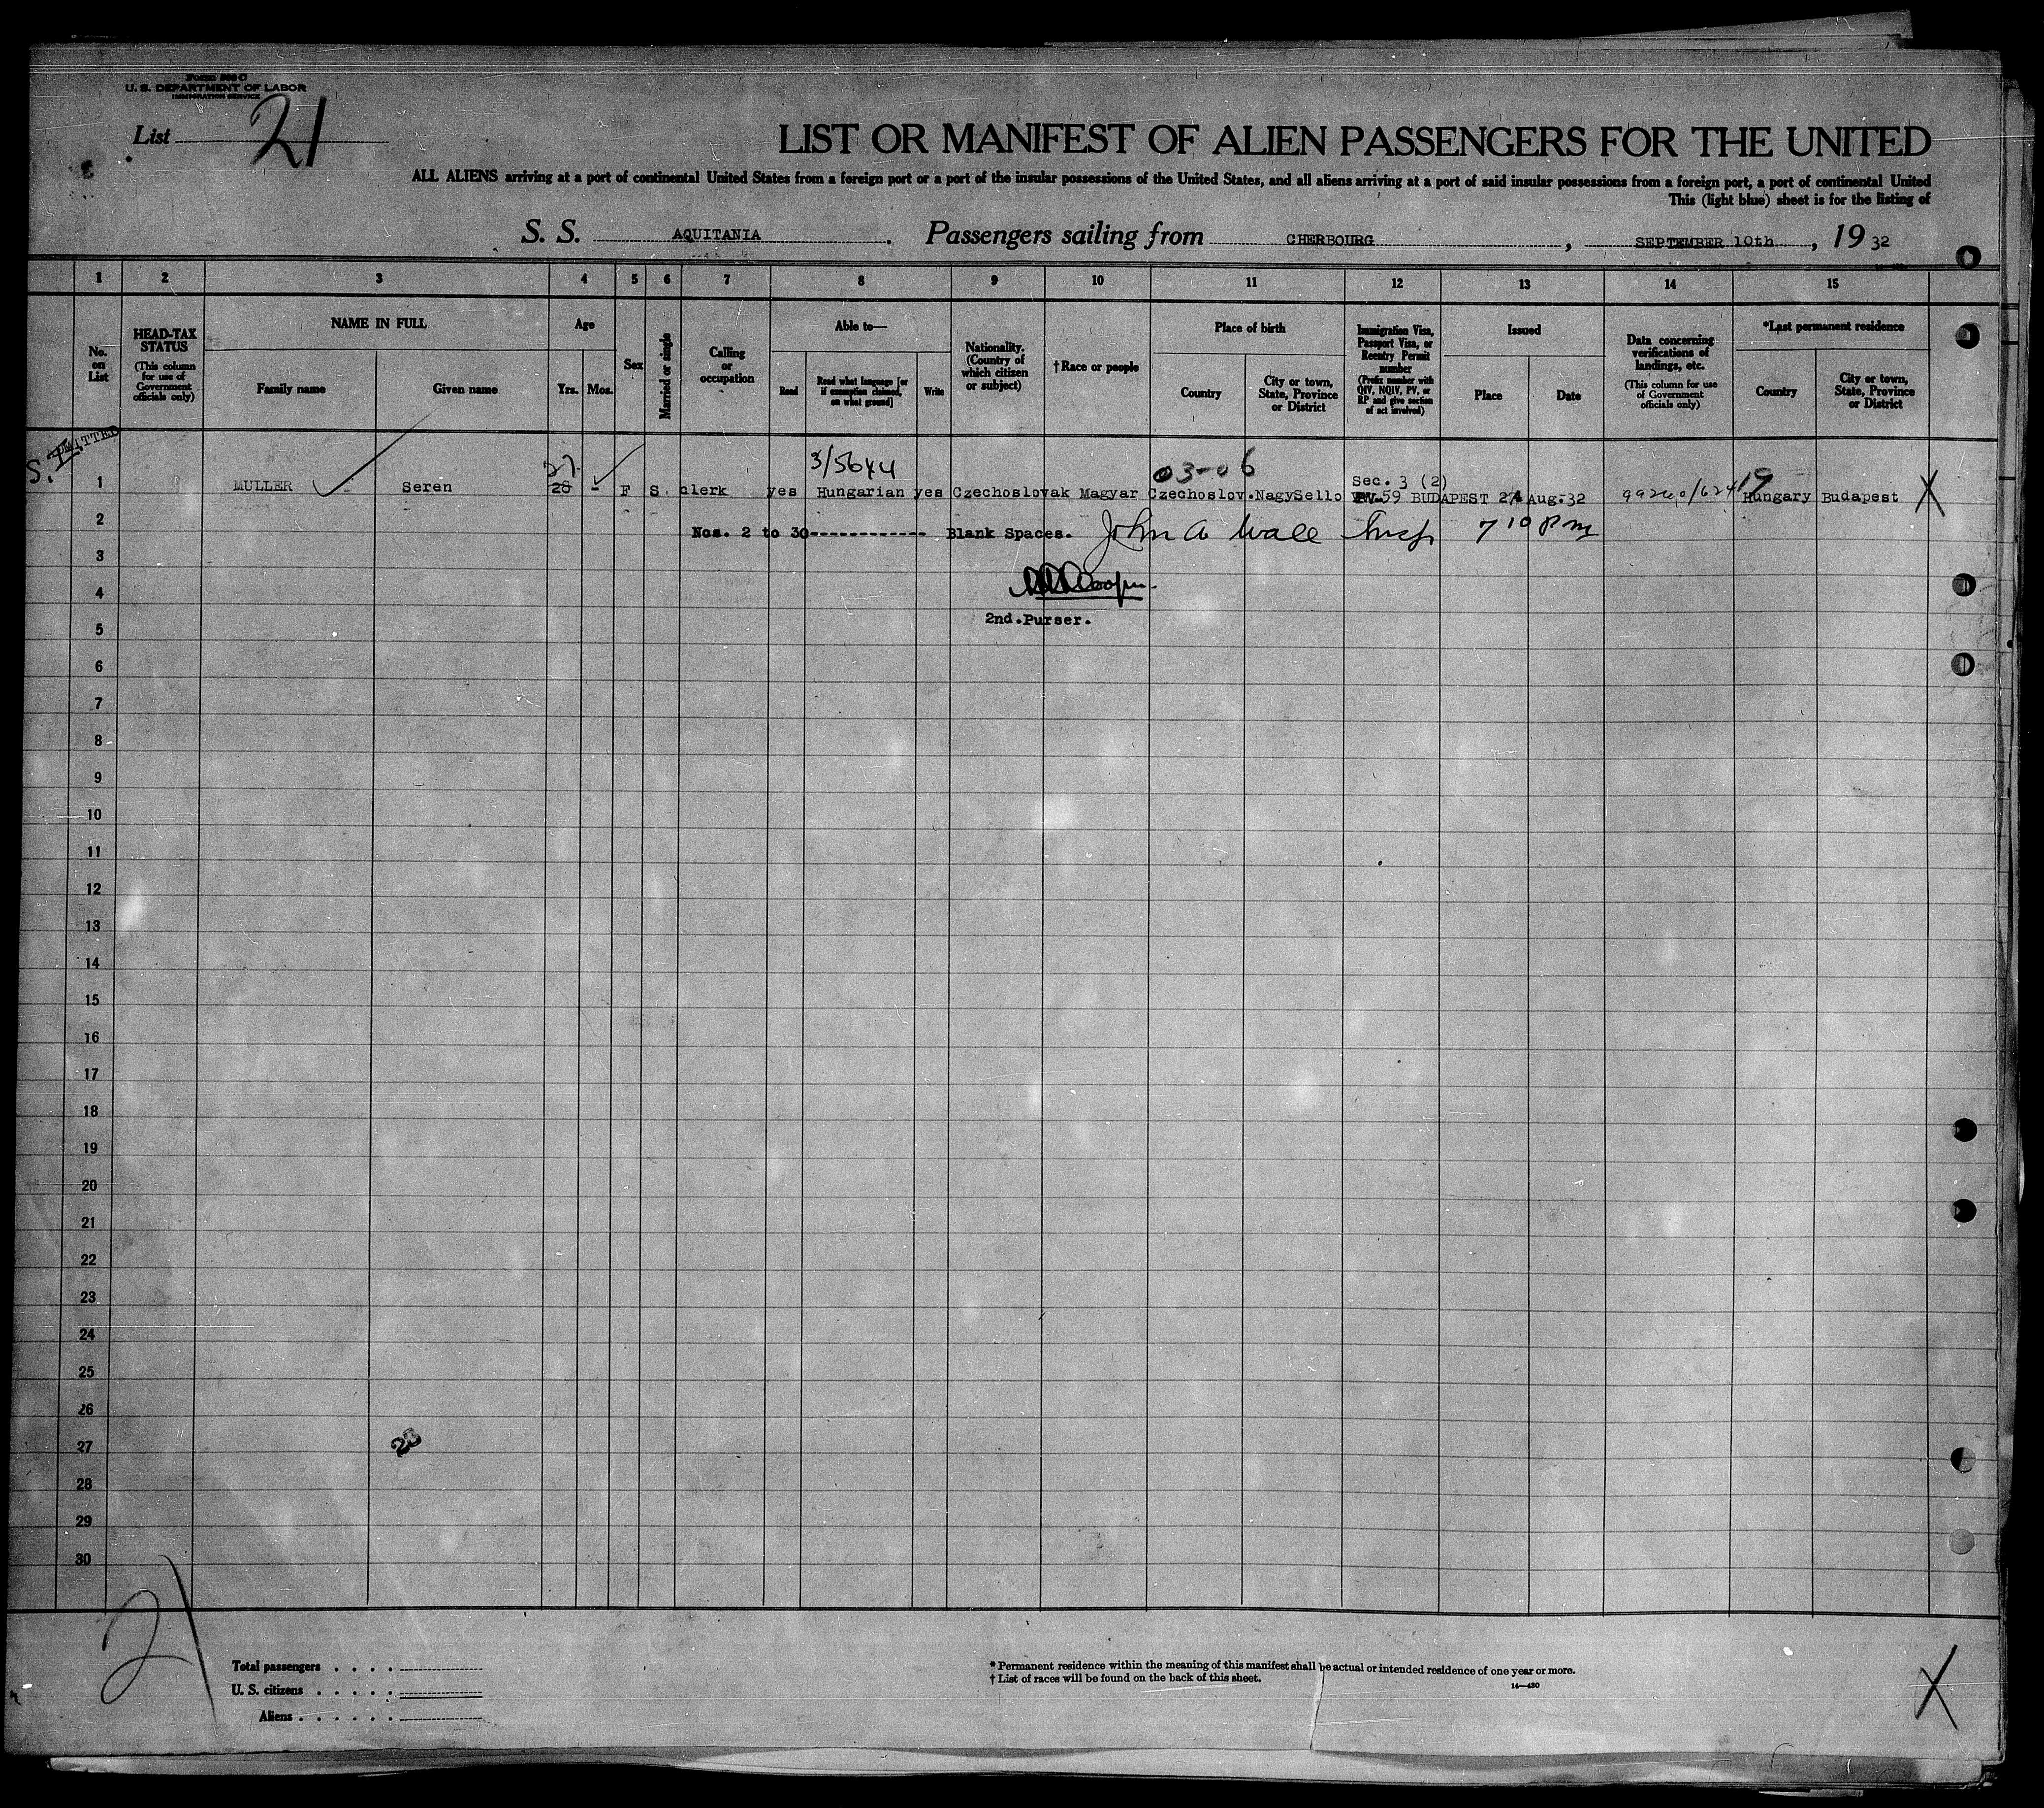 Form 500 C
U. S. DEPARTMENT OF LABOR
IMMIGRATION SERVICE
List 21
LIST OR MANIFEST OF ALIEN PASSENGERS FOR THE UNITED
ALL ALIENS arriving at a port of continental United States from a foreign port or a port of the insular possessions of the United States, and all aliens arriving at a port of said insular possessions from a foreign port, a port of continental United
This (light blue) sheet is for the listing of
S. S. AQUITANIA. Passengers sailing from CHERBOURG, SEPTEMBER 10th, 19 32
1 2 3 4 5 6 7 8 9 10 11 12 13 14 15
No. on List
HEAD-TAX STATUS
(This column for use of Government officials only)
NAME IN FULL
Family name
Given name
Age
Yrs.
Mos.
Sex
Married or single
Calling or occupation
Able to—
Read
Read what language [or if exemption claimed, on what ground]
Write
Nationality. (Country of which citizen or subject)
†Race or people
Place of birth
Country
City or town, State, Province or District
Immigration Visa, Passport Visa, or Reentry Permit number
(Prefix number with QIV, NQIV, PV, or RP and give section of act involved)
Issued
Place
Date
Data concerning verifications of landings, etc.
(This column for use of Government officials only)
*Last permanent residence
Country
City or town, State, Province or District
ADMITTED
27 3/5644 03-06 Sec. 3 (2) 19
1 MULLER Seren 28 - F S. clerk yes Hungarian yes Czechoslovak Magyar Czechoslov. NagySello PV-59 BUDAPEST 24 Aug. 32 Hungary Budapest X
2 Nos. 2 to 30------------ Blank Spaces. John A Wall Insp 7 10 PM
3
4
2nd. Purser.
5
6
7
8
9
10
11
12
13
14
15
16
17
18
19
20
21
22
23
24
25
26
27
28
28
29
30
21
Total passengers . . . .
U. S. citizens . . . . .
Aliens . . . . . .
* Permanent residence within the meaning of this manifest shall be actual or intended residence of one year or more.
† List of races will be found on the back of this sheet.
14—430
X